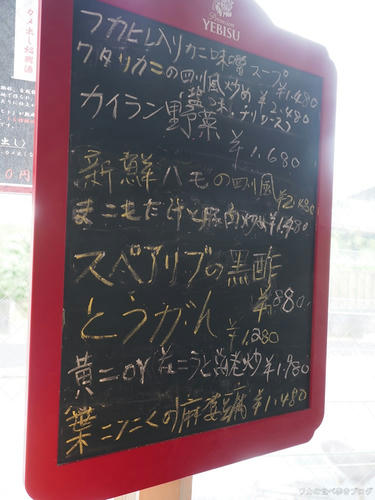 Premium
YEBISU
フカヒレ入りカニ味噌スープ ¥1.480
ワタリカニの四川風炒め ¥2.480
(塩味、チリソース)
カイラン野菜
¥1.680
新鮮ハモの四川風
まこもだけと豚肉炒め ¥1.480
スペアリブの黒酢
¥880
とうがん
¥1.280
黄ニラ ¥1.780
葉ニンニクの麻婆豆腐 ¥1.480
0円
ワカの食べ歩きブログ